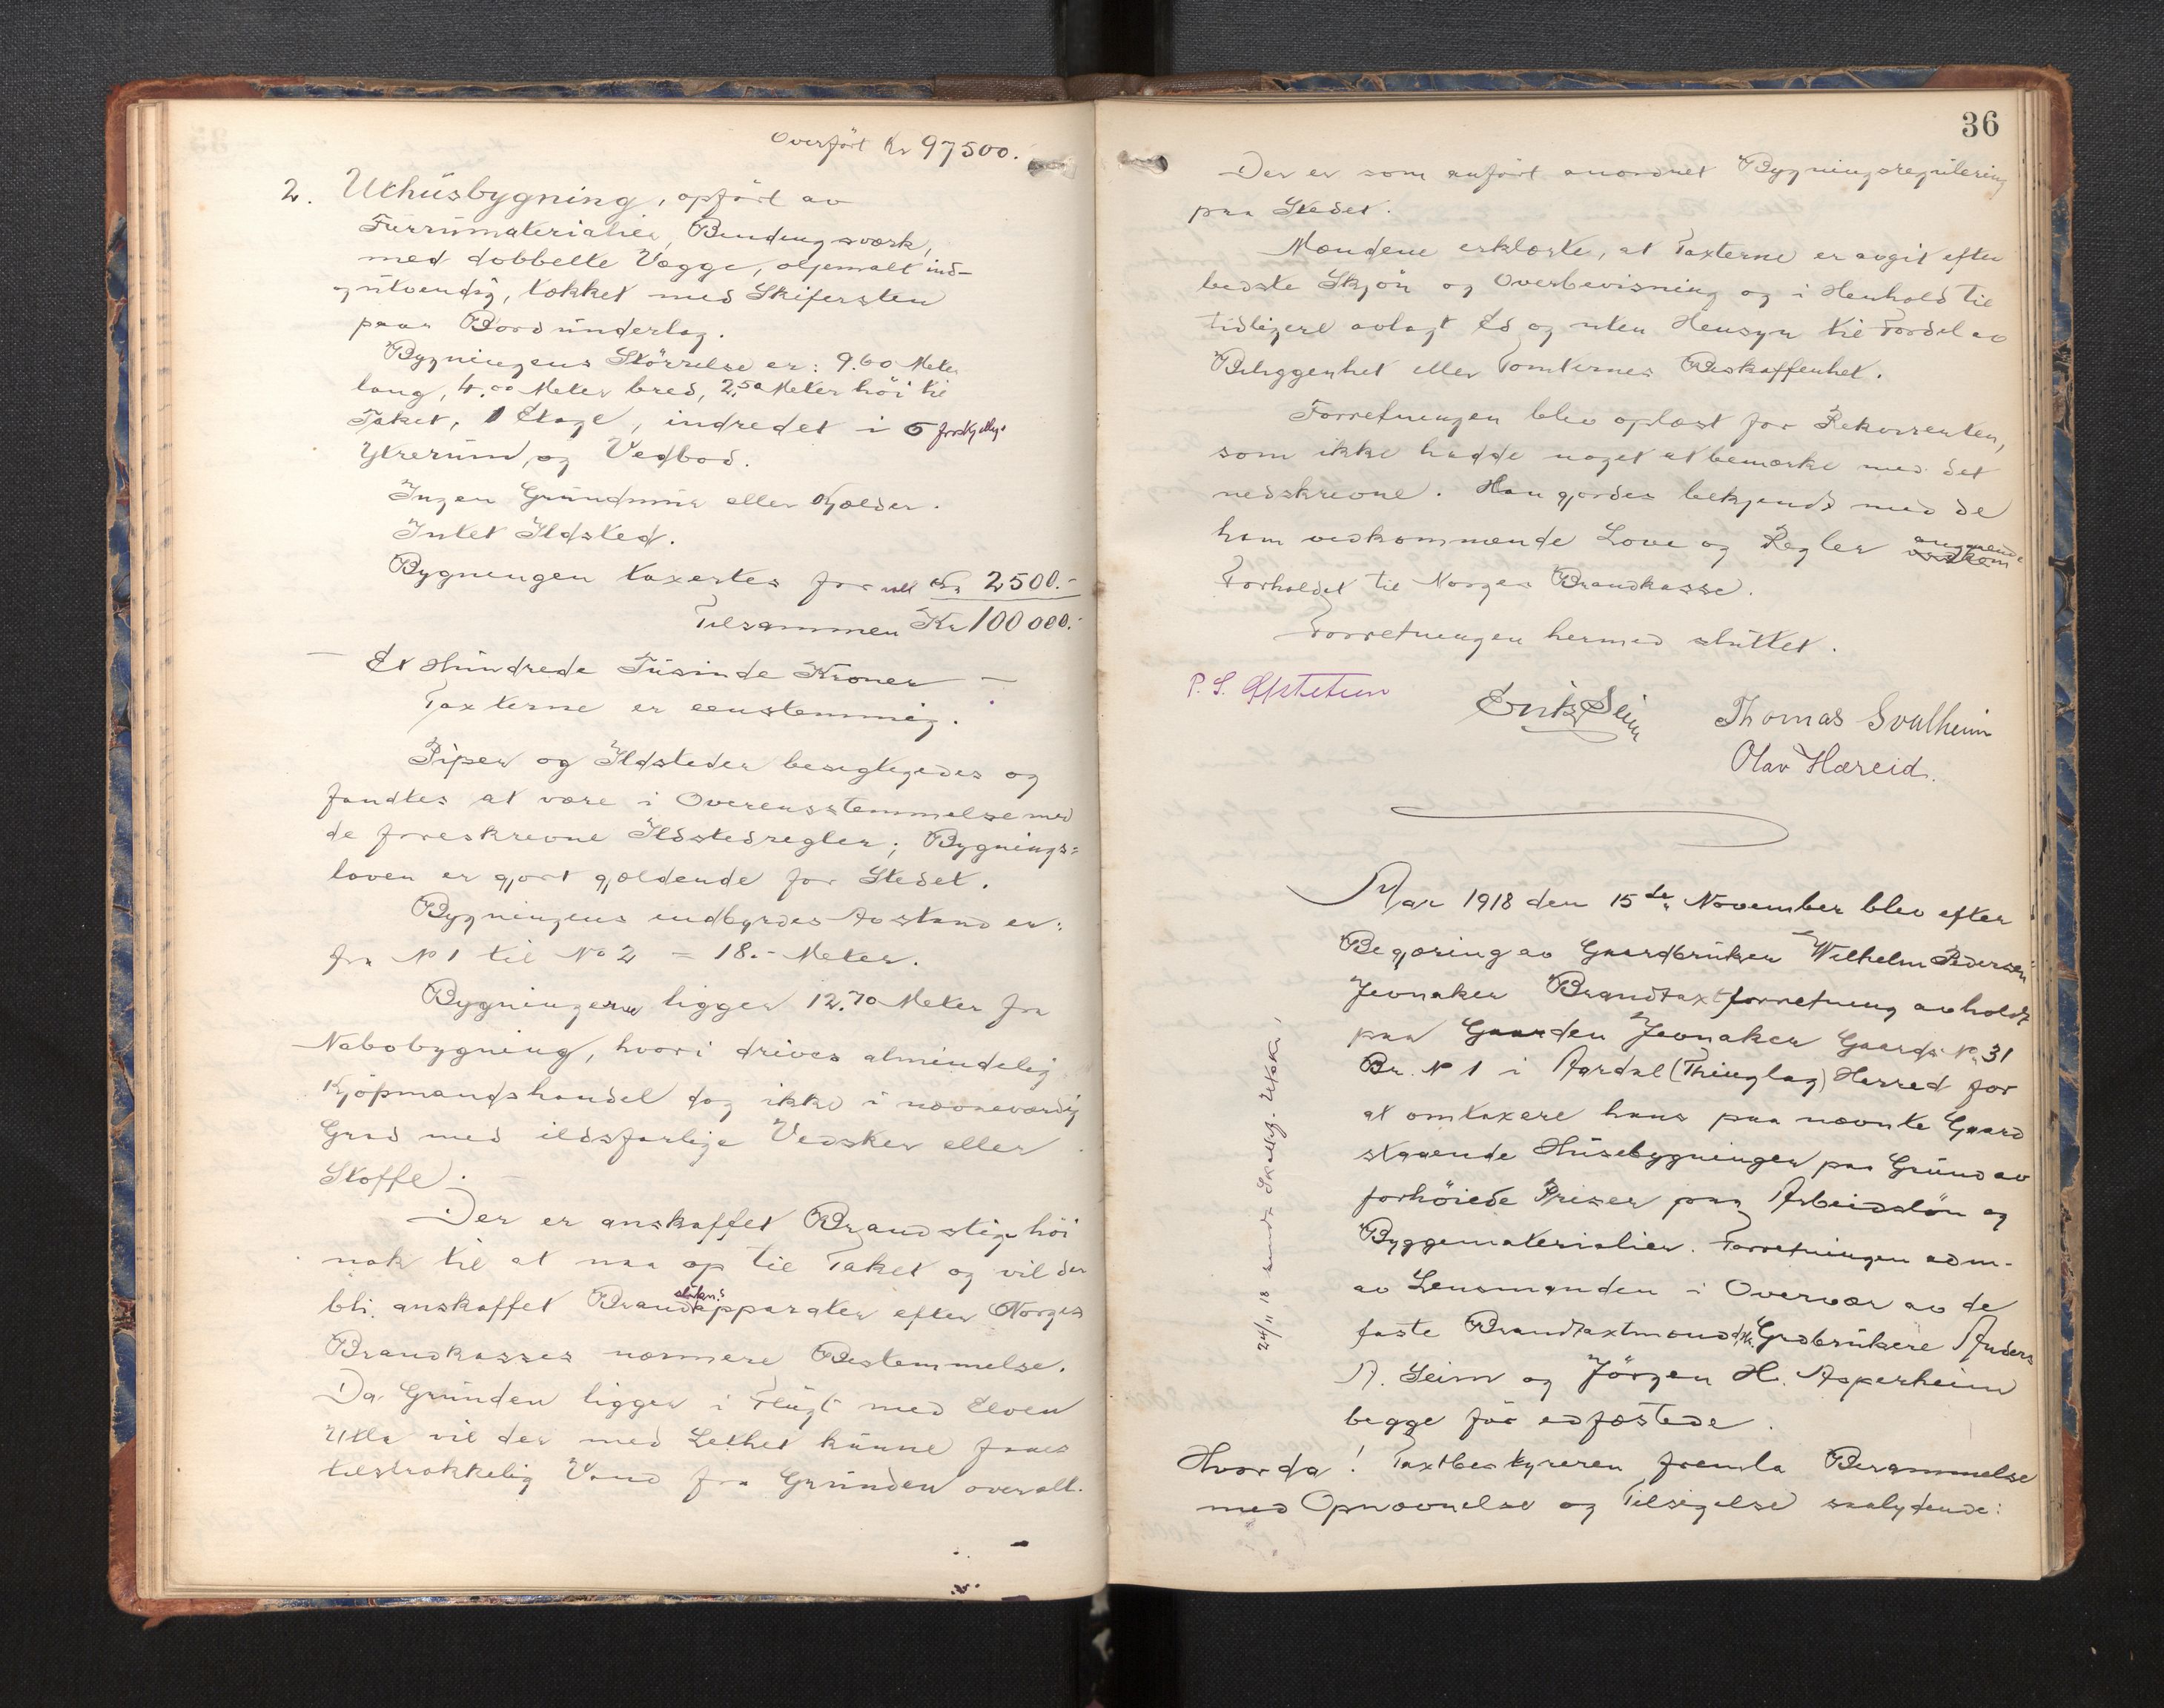 Overført Kr 97500.
2. Uthusbygning, opført av
Furrumaterialier, Bindingsværk,
med dobbelte Vægge, oljemalt ind-
og utvendig, tækket med Skifersten
paa Bordunderlag.
Bygningens Størrelse er: 9.60 Meter
lang, 4.00 Meter bred, 2,50 Meter høi til
Taket, 1 Etage, indredet i 5 forskjellige
Ytrerum, og Vedbod.
Ingen Grundmur eller Kjælder.
Intet Ildsted.
Bygningen taxertes for Kr 2500.-
Tilsammen Kr 100000.-
— Et Hundrede Tusinde Kroner —
Taxterne er eenstemmig.
Piper og Ildsteder besigtigedes og
fandtes at være i Overensstemmelse med
de foreskrevne Ildstedregler; Bygnings=
loven er gjort gjældende for Stedet.
Bygningens indbyrdes Avstand er:
fra No 1 til No 2 = 18.- Meter.
Bygningerne ligger 12.70 Meter fra
Nabobygning, hvori drives almindelig
Kjøpmandshandel dog ikke i nævneværdig
Grad med ildsfarlige Vædsker eller
Stoffe.
Der er anskaffet Brandstige høi
nok til at naa op til Taket og vil der
bli anskaffet Brandapparater efter Norges
Brandkasses nærmere Bestemmelse.
Da Grunden ligger i Flugt med Elven
Utla vil der med Lethet kunne faaes
tilstrækkelig Vand fra Grunden overalt.
36
Der er som anført anordnet Bygningsregulering
paa Stedet.
Mændene erklærte, at Taxterne er avgit efter
bedste Skjøn og Overbevisning og i Henhold til
tidligere avlagt Ed og uten Hensyn til Fordel av
Beliggenhet eller Tomternes Beskaffenhet.
Forretningen blev oplæst for Rekvirenten,
som ikke hadde noget at bemærke med det
nedskrevne. Han gjordes bekjendt med de
ham vedkommende Love og Regler angaaende
Forholdet til Norges Brandkasse.
Forretningen hermed sluttet.
P. S. Ofstetun Erik Seim Thomas Svalheim
Olav Hæreid.
Aar 1918 den 15de November blev efter
Begjæring av Gaardbruker Wilhelm Pedersen
Jevnaker Brandtaxtforretning avholdt
paa Gaarden Jevnaker Gaards No 31
Br. No 1 i Aardal (Thinglag) Herred for
at omtaxere hans paa nævnte Gaard
staaende Husebygninger paa Grund av
forhøiede Priser paa Arbeidsløn og
Byggematerialier. Forretningen adm-
av Lensmanden i Overvær av de
faste Brandtaxtmænd Grdbrukere Anders
A. Seim og Jørgen H. Asperheim
begge før edfæstede.
Hvorda! Taxtbestyreren fremla Berammelse
med Opnævnelse og Tilsigelse saalydende:
24/11 18 sendt Utskr.